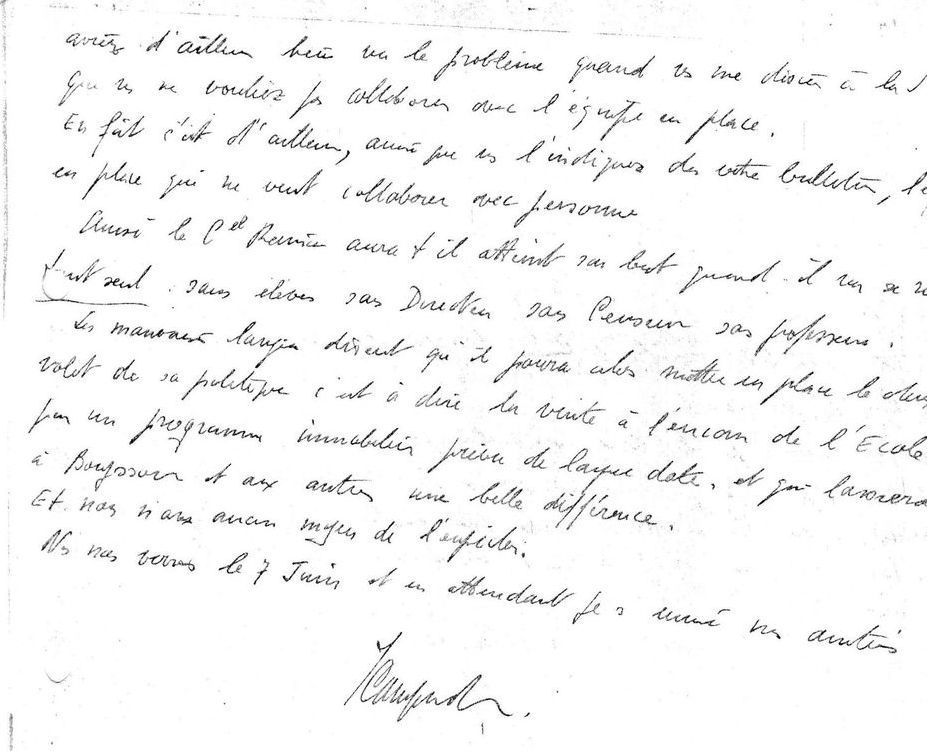 aviez d'ailleurs bien vu le problème quand vs me disiez à la
que vs ne vouliez pas collaborer avec l'équipe en place.
En fait c'est d'ailleurs, ainsi que vs l'indiquez ds votre bulletin,
en place qui ne veut collaborer avec personne
Ainsi le Cel aura t il atteint son but quand il va se
tout seul. sans élèves sans Directeur sans Censeur sans professeurs.
Les mauvaises langues disent qu'il pourra alors mettre en place le
volet de sa politique c'est à dire la vente à l'encan de l'Ecole
par un programme immobilier prévu de longue date, et qui laissera
à et aux autres une belle différence.
Et nous n'avons aucun moyen de l'empêcher.
Ns nous verrons le 7 Juin et en attendant je envoie mes amitiés